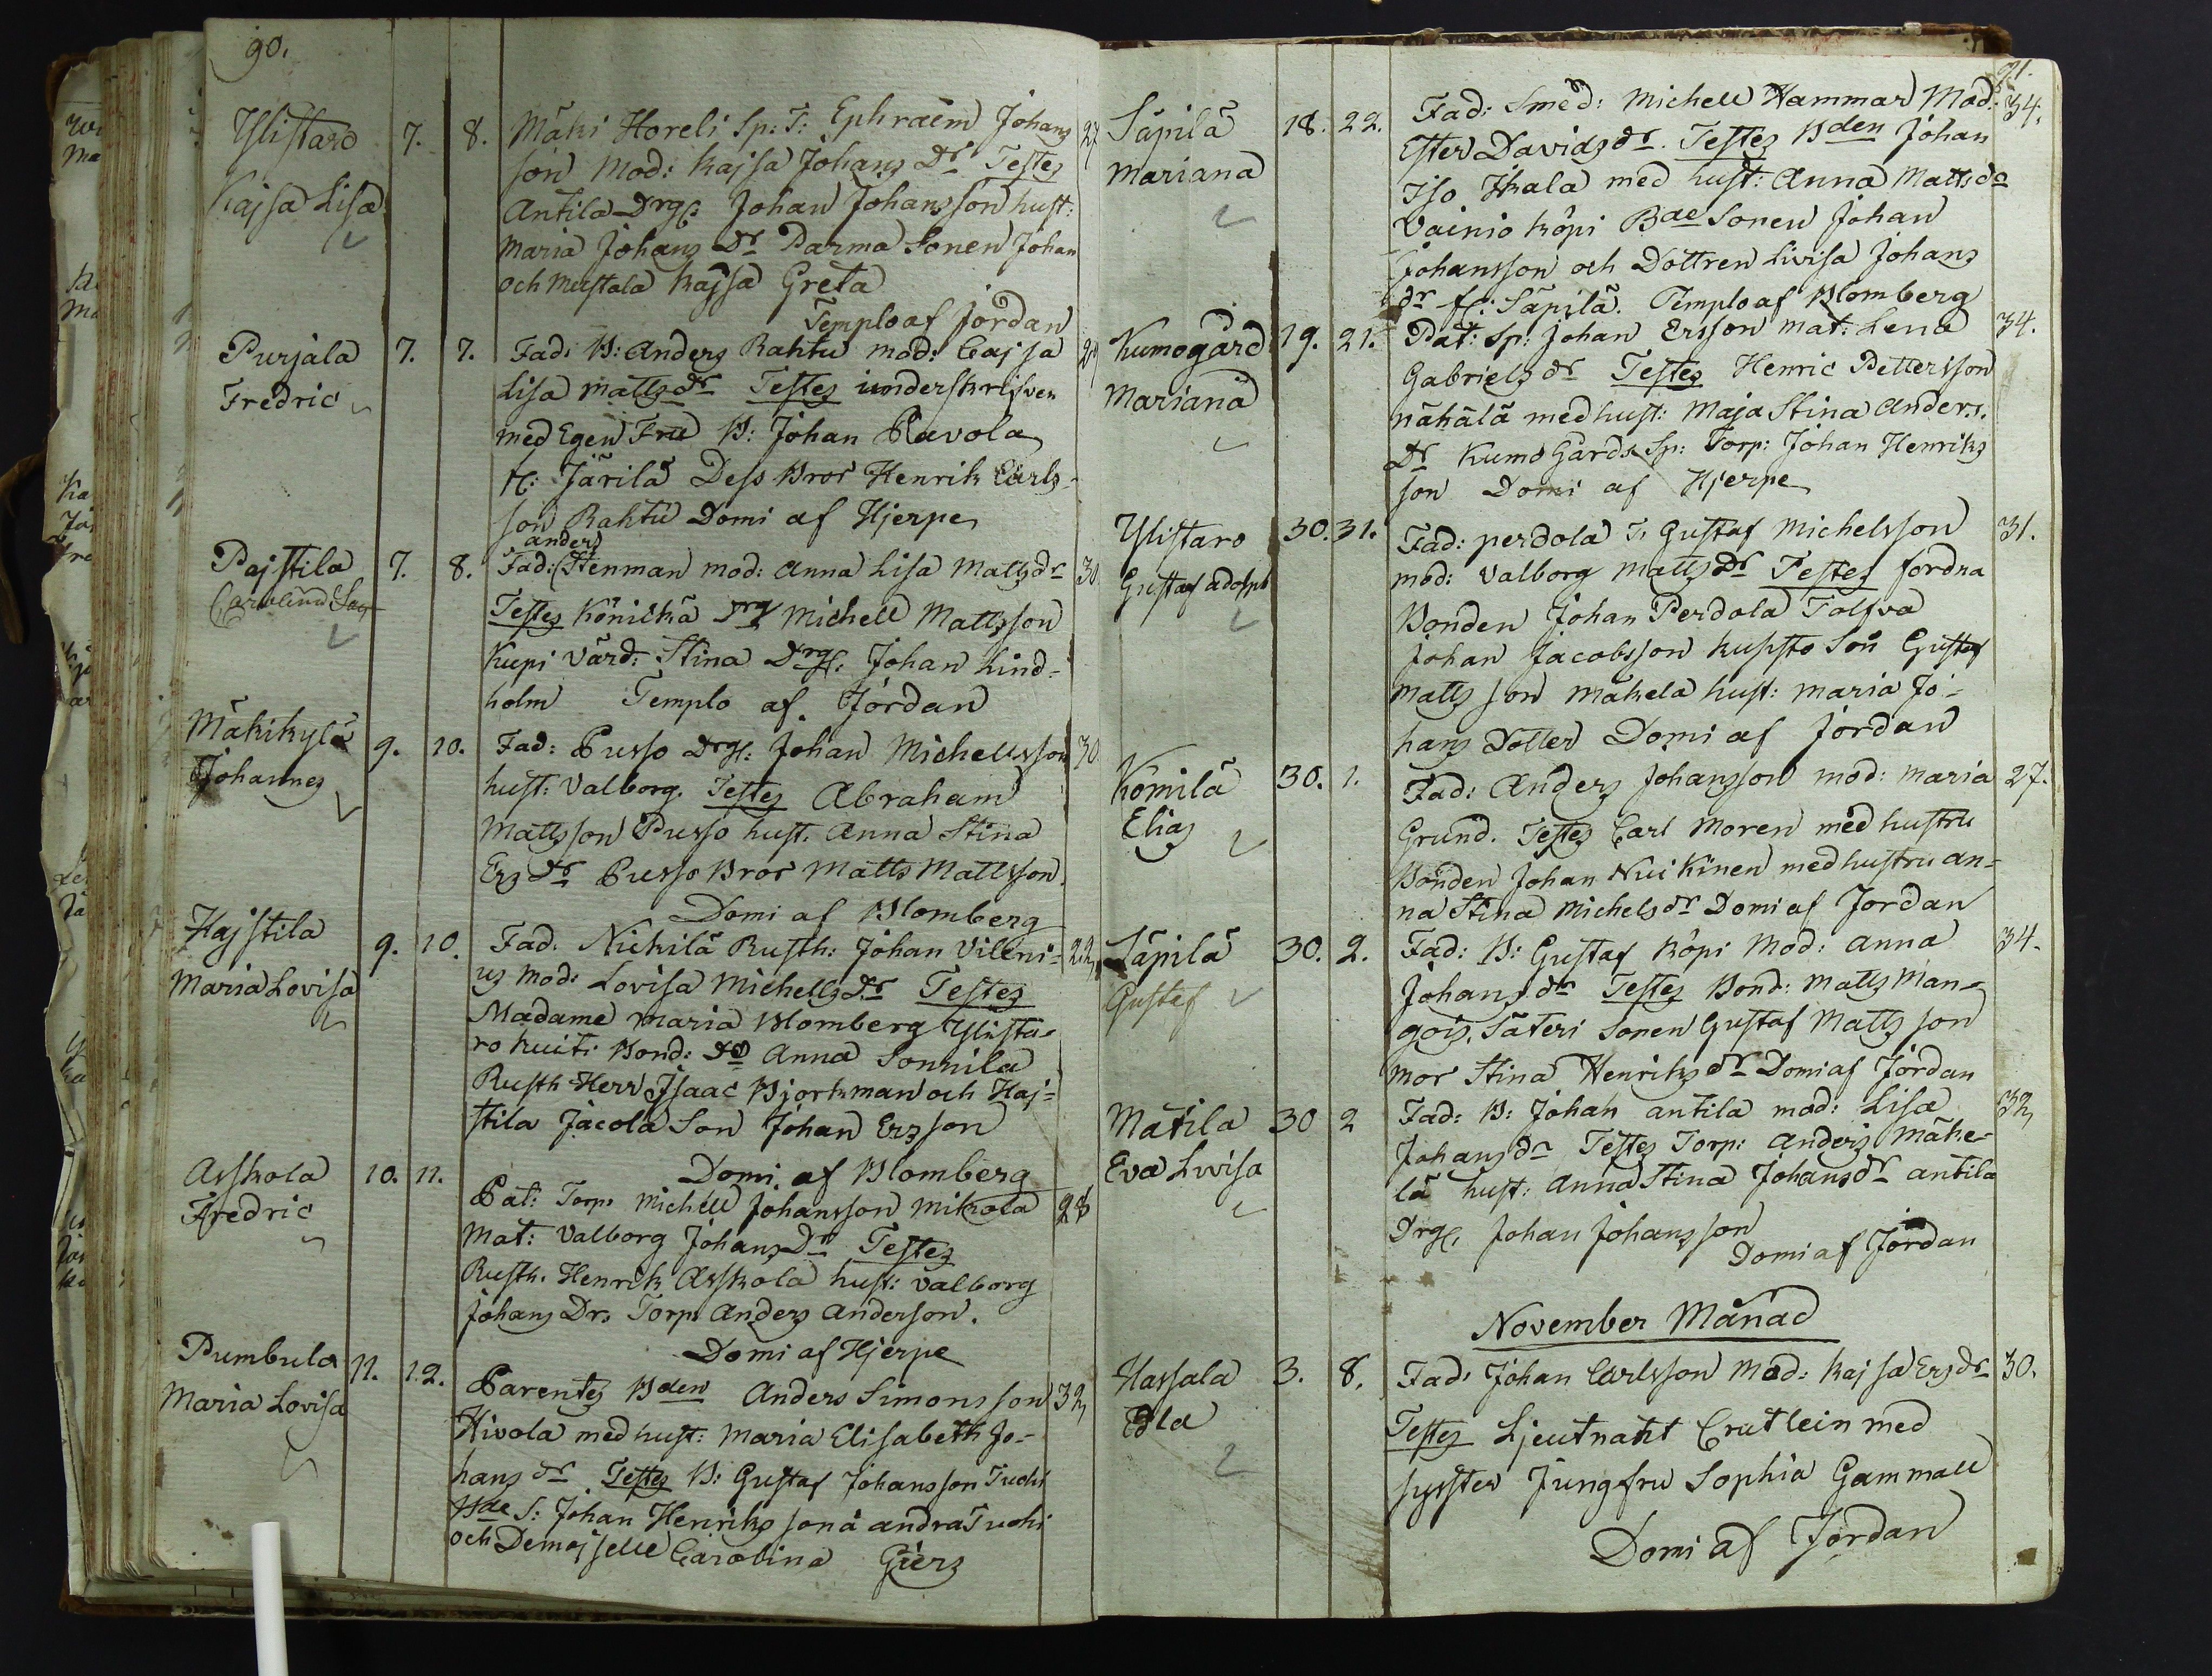 90.
Ylistaro 7. 8. Mäki Horeli Sp: T: Ephraëm Johans 27
Kajsa Lisa son Mod: Kajsa Johans Dr Testes
Antila Drg: Johan Johansson hust:
Maria Johans Dr Parma Sonen Johan
och Mustala Kajsa Greta
Templo af Jordan
Purjala 7. 7. Fad: B: Anders Rahtu mod: Cajsa 29
Fredric Lisa Matts dr Testes underskrifven
med Egen Fru B: Johan Pavola
fr: Järilä Dess Bror Henrik Carls-
son Rahtu Domi af Hjerpe
anders
Pajstila 7. 8. Fad: Stenman mod: Anna Lisa Matts dr 30
Carolina Testes Könickä Drg Michell Mattsson
Kupi Värd: Stina Drg: Johan Lind-
holm Templo af Jordan
Mäkikylä 9. 10. Fad: Pusso Drg: Johan Michellsson 30
Johannes hust: Valborg. Testes Abraham
Mattsson Pusso hust: Anna Stina
Ers dr Pusso Bror Matts Mattsson.
Domi af Blomberg
Hajstila 9. 10. Fad: Nickilä Rusth: Johan Vileni- 22
Maria Lovisa us Mod: Lovisa Michells dr Testes
Madame Maria Blomberg Ylista-
ro kuiti Bond: do Anna Sonnila
Rusth Herr Isaac Bjorkman och Haj-
stila Jacola Son Johan Ersson
Domi af Blomberg
Asskola 10. 11. Pat: Torp: Michell Johansson Mikola 28
Fredric Mat: Valborg Johans Dr Testes
Rusth. Henrik Asskola hust: Valborg
Johans Dr. Torp. Anders Anderson.
Domi af Hjerpe
Pumbula 11. 12. Parentes Bden Anders Simonsson 32
Maria Lovisa Hivola med hust: Maria Elisabeth Jo-
hans dr Testes B: Gustaf Johansson Tuohi
Bde S: Johan Henriksson å andra Tuohi
och Demoiselle Carolina Giers
91.
Säpilä 18. 22. Fad: Smed: Michell Hammar Mod: 34.
Mariana Ester Davids dr. Testes Bden Johan
Iso Ikala med hust: Anna Matts dr
Vainio Köpi Bde Sonen Johan
Johansson och Dottren Lovisa Johans
dr fr: Säpilä. Templo af Blomberg
Kumogård 19. 21. Pat: Sp: Johan Ersson Mat: Lena 34.
Mariana Gabriels dr Testes Henric Pettersson
Nähälä med hust: Maja Stina Anders.
Dr Kumo Gårds Sp: Torp: Johan Henriks
son Domi af Hjerpe
Ylistaro 30. 31. Fad: Perdola T. Gustaf Michelsson 31.
Gustaf Adolph mod: Valborg Matts dr Testes fordna
Bonden Johan Perdola Tolfva
Johan Jacobsson Kuppsto Son Gustaf
Matts son Mäkelä hust: Maria Jo-
hans Dotter Domi af Jordan
Komilä 30. 1. Fad: Anders Johansson mod: Maria 27.
Elias Grund. Testes Carl Moren med hustru
Bonden Johan Nuikinen med hustru An-
na Stina Michels dr Domi af Jordan
Säpilä 30. 2. Fad: B: Gustaf Köpi Mod: Anna 34.
Gustaf Johans dr Testes Bond: Matts Man-
gois, Säteri Sonen Gustaf Matts son
Mor Stina Henriks dr Domi af Jordan
Matila 30 2 Fad: B: Johan Antila mod: Lisa 32
Eva Lovisa Johans dr Testes Torp: Anders Mäke-
lä hust: Anna Stina Johans dr Antila
Drg, Johan Johansson
Domi af Jordan
November Månad
Hassala 3. 8. Fad: Johan Carlsson Mod: Kajsa Ers dr 30.
Edla Testes Ljeutnant Crutlein med
syster Jungfru Sophia Gammall
Domi af Jordan